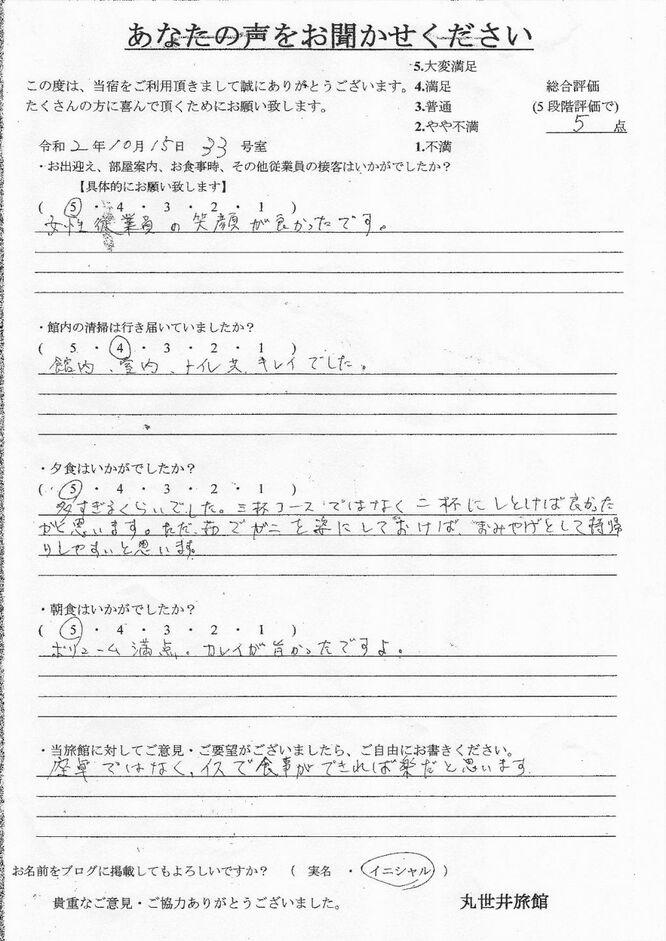 あなたの声をお聞かせください
5.大変満足
この度は、当宿をご利用頂きまして誠にありがとうございます。 4.満足 総合評価
たくさんの方に喜んで頂くためにお願い致します。 3.普通 (5段階評価で)
2.やや不満 5 点
令和 2 年 10 月 15 日 33 号室 1.不満
・お出迎え、部屋案内、お食事時、その他従業員の接客はいかがでしたか?
【具体的にお願い致します】
( 5 ・ 4 ・ 3 ・ 2 ・ 1 )
女性従業員の笑顔が良かったです。
・館内の清掃は行き届いていましたか?
( 5 ・ 4 ・ 3 ・ 2 ・ 1 )
館内、室内、トイレ共、キレイでした。
・夕食はいかがでしたか?
( 5 ・ 4 ・ 3 ・ 2 ・ 1 )
多すぎるくらいでした。三杯コースではなく二杯にしとけば良かった
かと思います。ただ、茹でガニを楽にしておけば、おみやげとして持帰
りしやすいと思います。
・朝食はいかがでしたか?
( 5 ・ 4 ・ 3 ・ 2 ・ 1 )
ボリューム満点。カレイが旨かったですよ。
・当旅館に対してご意見・ご要望がございましたら、ご自由にお書きください。
座卓ではなく、イスで食事ができれば楽だと思います
お名前をブログに掲載してもよろしいですか? ( 実名 ・ イニシャル )
貴重なご意見・ご協力ありがとうございました。 丸世井旅館